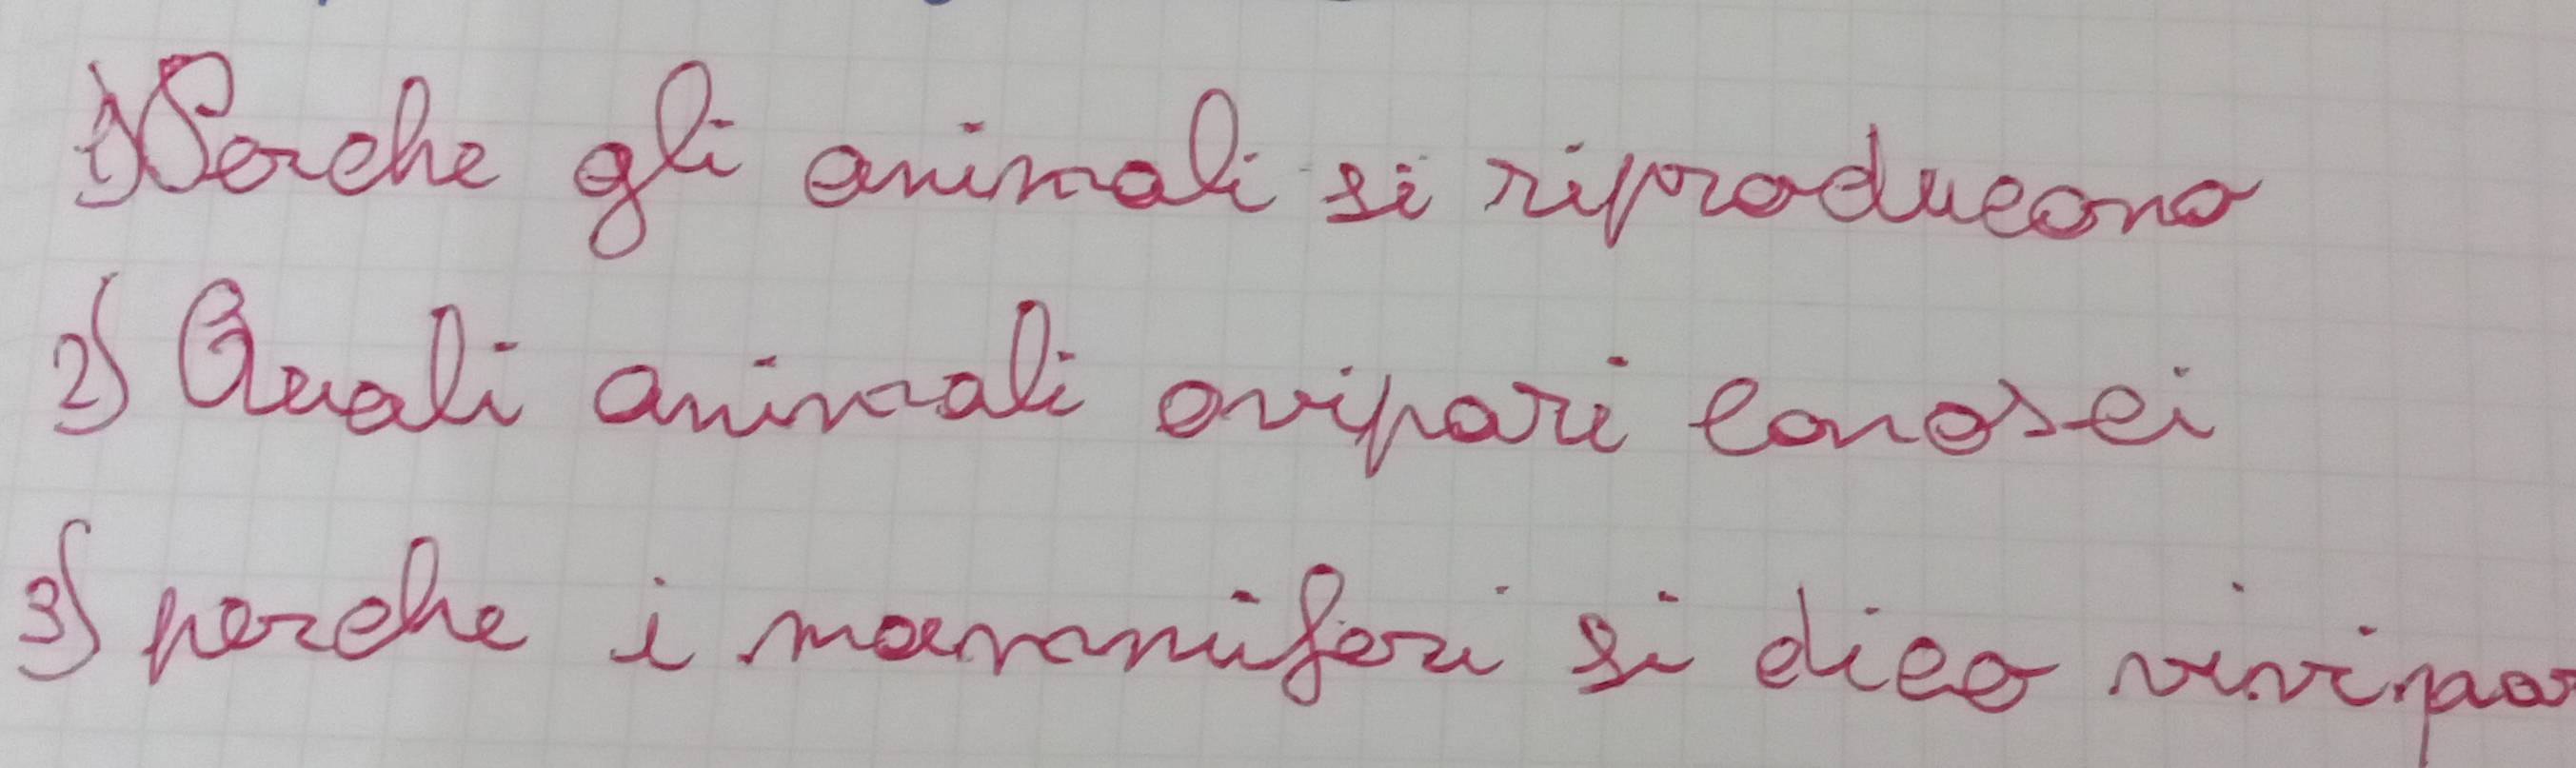 1) Perche gli animali si riproducono
2) Quali animali ovipari conosci
3) perche i mammiferi si dico vivipar